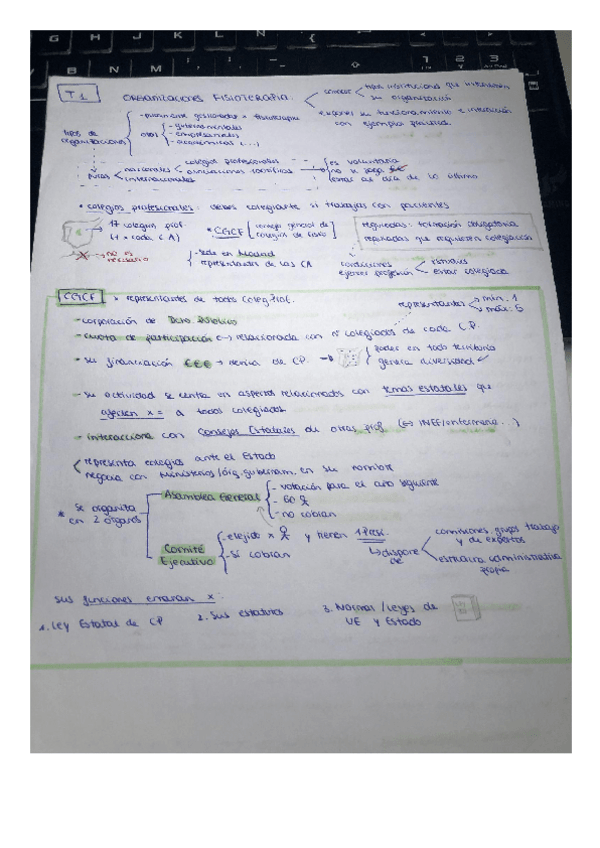 T1 ORGANIZACIONES FISIOTERAPIA.
conocer tipos instituciones que intervienen
su organización
exponer su funcionamiento e interacción
con ejemplos prácticos.
tipos de
organizaciones
OTROS
- gubernamentales
- empresariales
- académicas (...)
colegios profesionales
nacionales
internacionales
asociaciones científicas
es voluntaria
no se paga
estás al día de lo último
• colegios profesionales: debes colegiarte si trabajas con pacientes
17 colegios prof.
(1 x cada CA)
no es
necesario
* CGCF [consejo general de
colegios de fisio]
- sede en Madrid
representantes de las CA
reguladas: formación obligatoria
reguladas que requieren colegiación
condiciones
ejercer profesión
estudios
estar colegiado
CGCF * representantes de todos coleg. prof.
representantes
min. 1
máx. 5
- corporación de Dcho. Público
- cuota de participación ↔ relacionada con nº colegiados de cada CP.
- su financiación €€€ + venía de CP.
poder en todo territorio
genera diversidad
- su actividad se centra en aspectos relacionados con temas estatales que
afecten x = a todos colegiados.
- interacciona con Consejos Estatales de otras prof. (↔ INEF/enfermería...)
representa colegios ante el Estado
negocia con Ministerios/órg. gubernam. en su nombre
* se organiza
en 2 órganos
Asamblea General
- votación para el año siguiente
- 60
- no cobran
Comité
Ejecutivo
- elegido x y tienen 1 Pres.
- sí cobran
dispone
de
comisiones, grupos trabajo
y de expertos
estructura administrativa
propia
sus funciones estarán x:
1. Ley Estatal de CP
2. Sus estatutos
3. Normas/Leyes de
UE y Estado